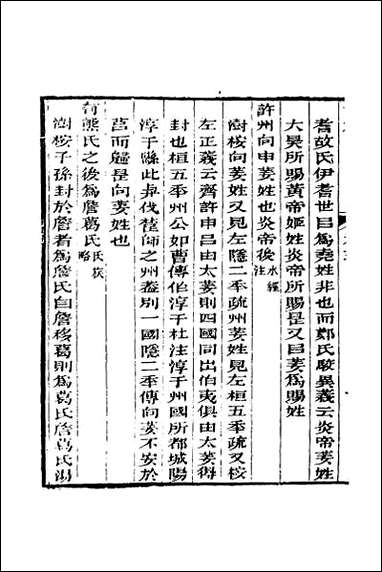 耆故氏伊耆世曰爲堯姓非也而鄭氏駮異義云炎帝姜姓
大昊所賜黃帝姬姓炎帝所賜是又曰姜爲賜姓
許州向申姜姓也炎帝後水經注
澍桉向姜姓又見左隱二秊疏州姜姓見左桓五秊疏又桉
左正義云齊許申呂由太姜則四國同出伯夷俱由太姜得
封也桓五秊州公如曹傳伯淳于杜注淳于州國所都城陽
淳于縣此與伐楚師之州葢別一國隱二秊傳向姜不安於
莒而歸是向姜姓也
有熊氏之後爲詹葛氏氏族略
澍桉子孫封於詹者爲詹氏自詹移葛則爲葛氏詹葛氏湯